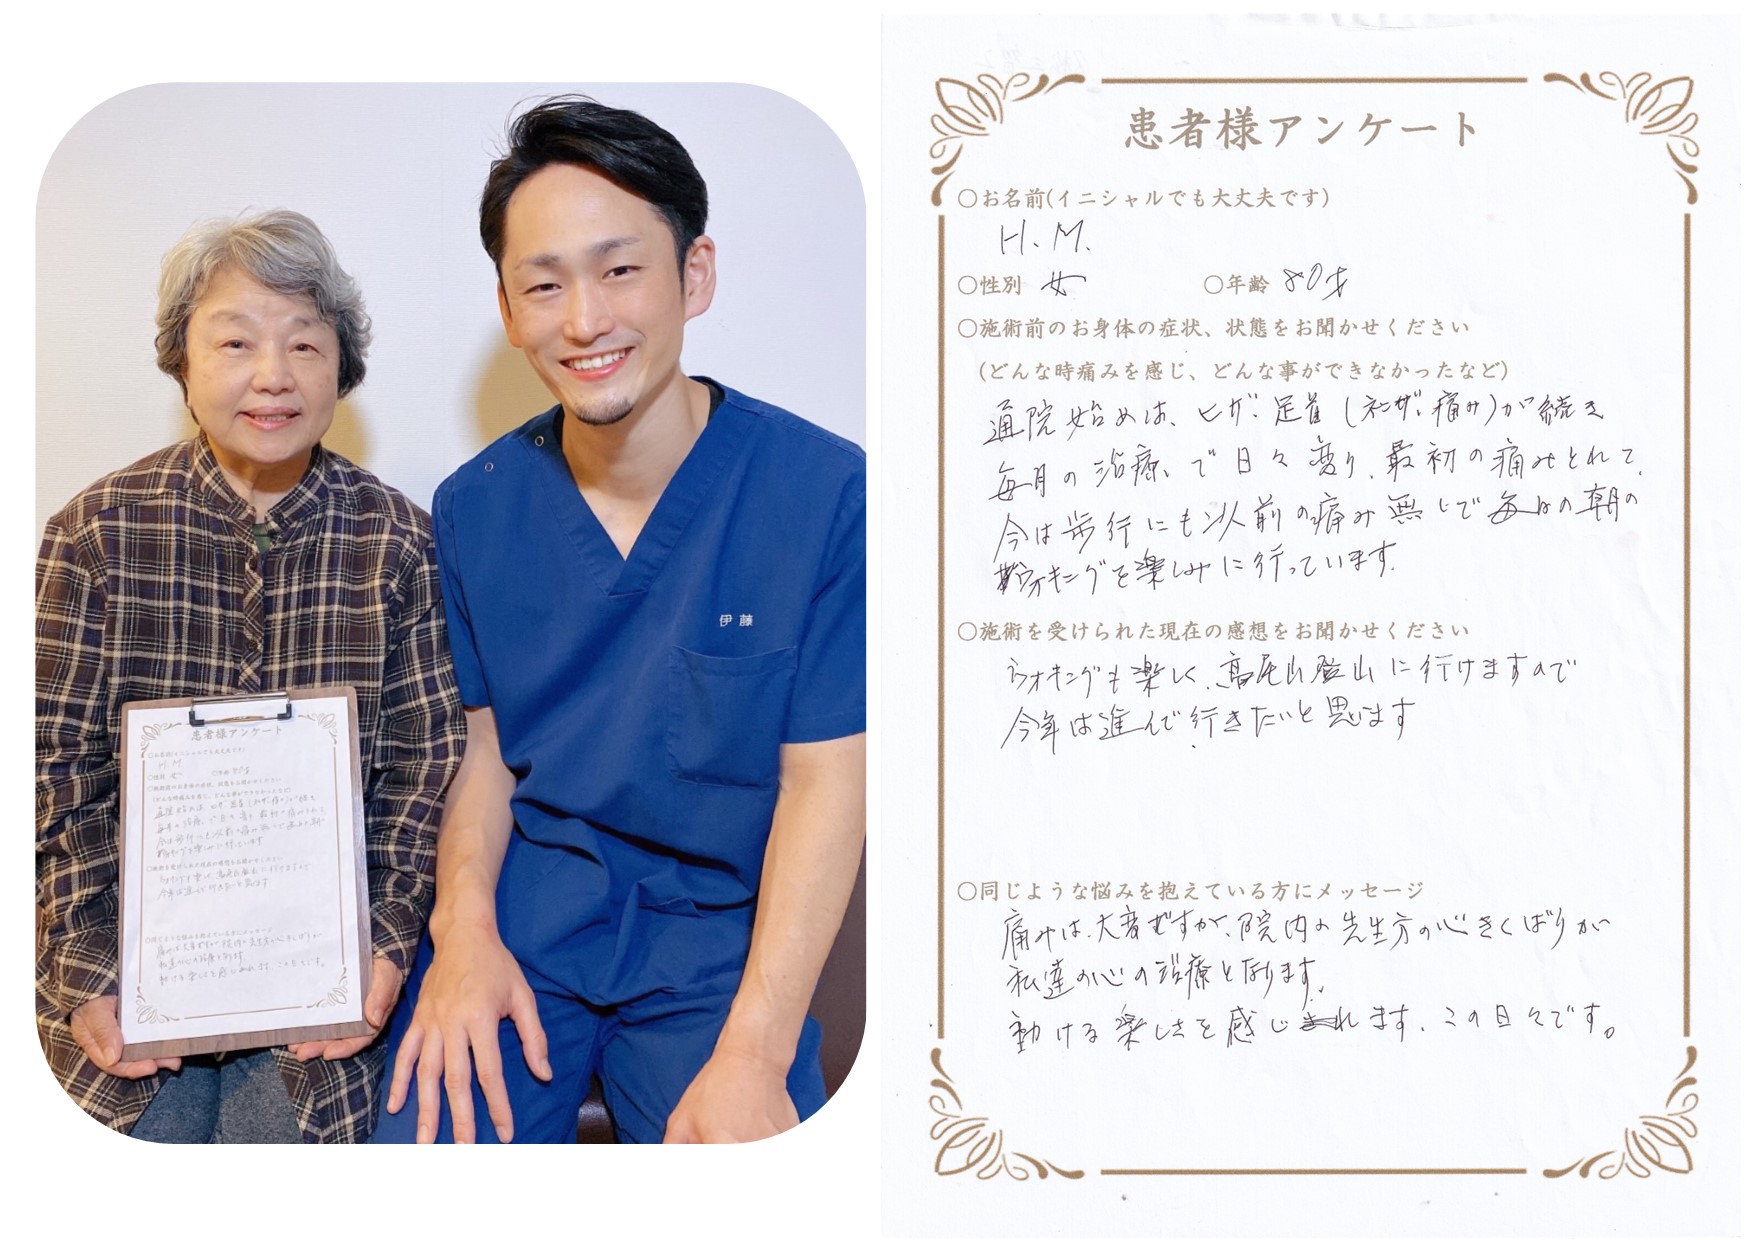 伊藤
患者様アンケート
○お名前(イニシャルでも大丈夫です)
H. M.
○性別 女 ○年齢 80才
○施術前のお身体の症状、状態をお聞かせください
(どんな時痛みを感じ、どんな事ができなかったなど)
通院始めは、ヒザ、足首(ネンザ、痛み)が続き
毎月の治療、で日々変り、最初の痛みとれて、
今は歩行にも以前の痛み無しで毎日の朝の
ウォキングを楽しみに行っています。
○施術を受けられた現在の感想をお聞かせください
ウォキングも楽しく、高尾山登山に行けますので
今年は進んで行きたいと思います
○同じような悩みを抱えている方にメッセージ
痛みは、大変ですが、院内の先生方の心きくばりが
私達の心の治療となります。
動ける楽しさを感じられます、この日々です。